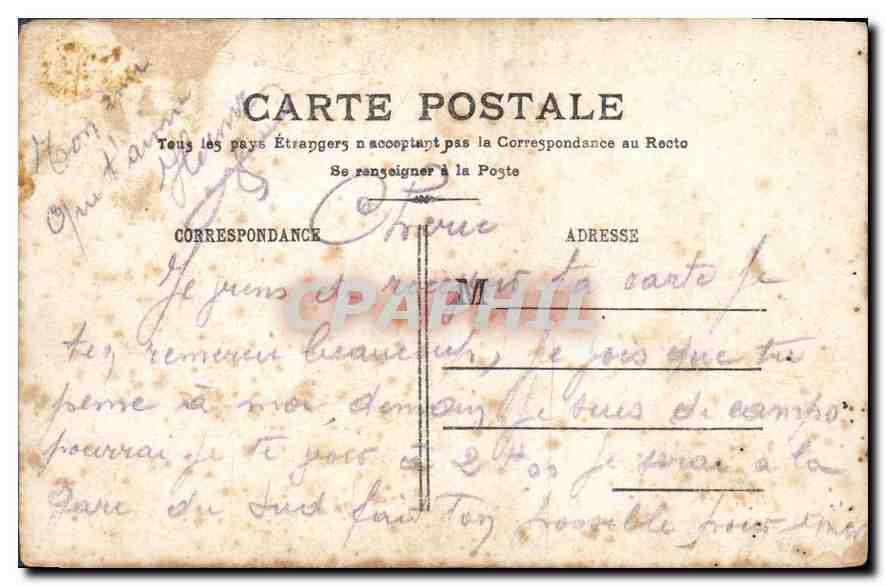 CARTE POSTALE
Tous les pays Étrangers n'acceptant pas la Correspondance au Recto
Se renseigner à la Poste
CORRESPONDANCE
ADRESSE
Mon
Que t'aime
Je viens de ta carte Je
M
CPAPHIL
ten remercie beaucoup, Je vois que tu
pense à moi demain Je suis de campo
pourrai Je te voir à 2 H00 Je serai à la
Gare du Sud fait ton possible pour